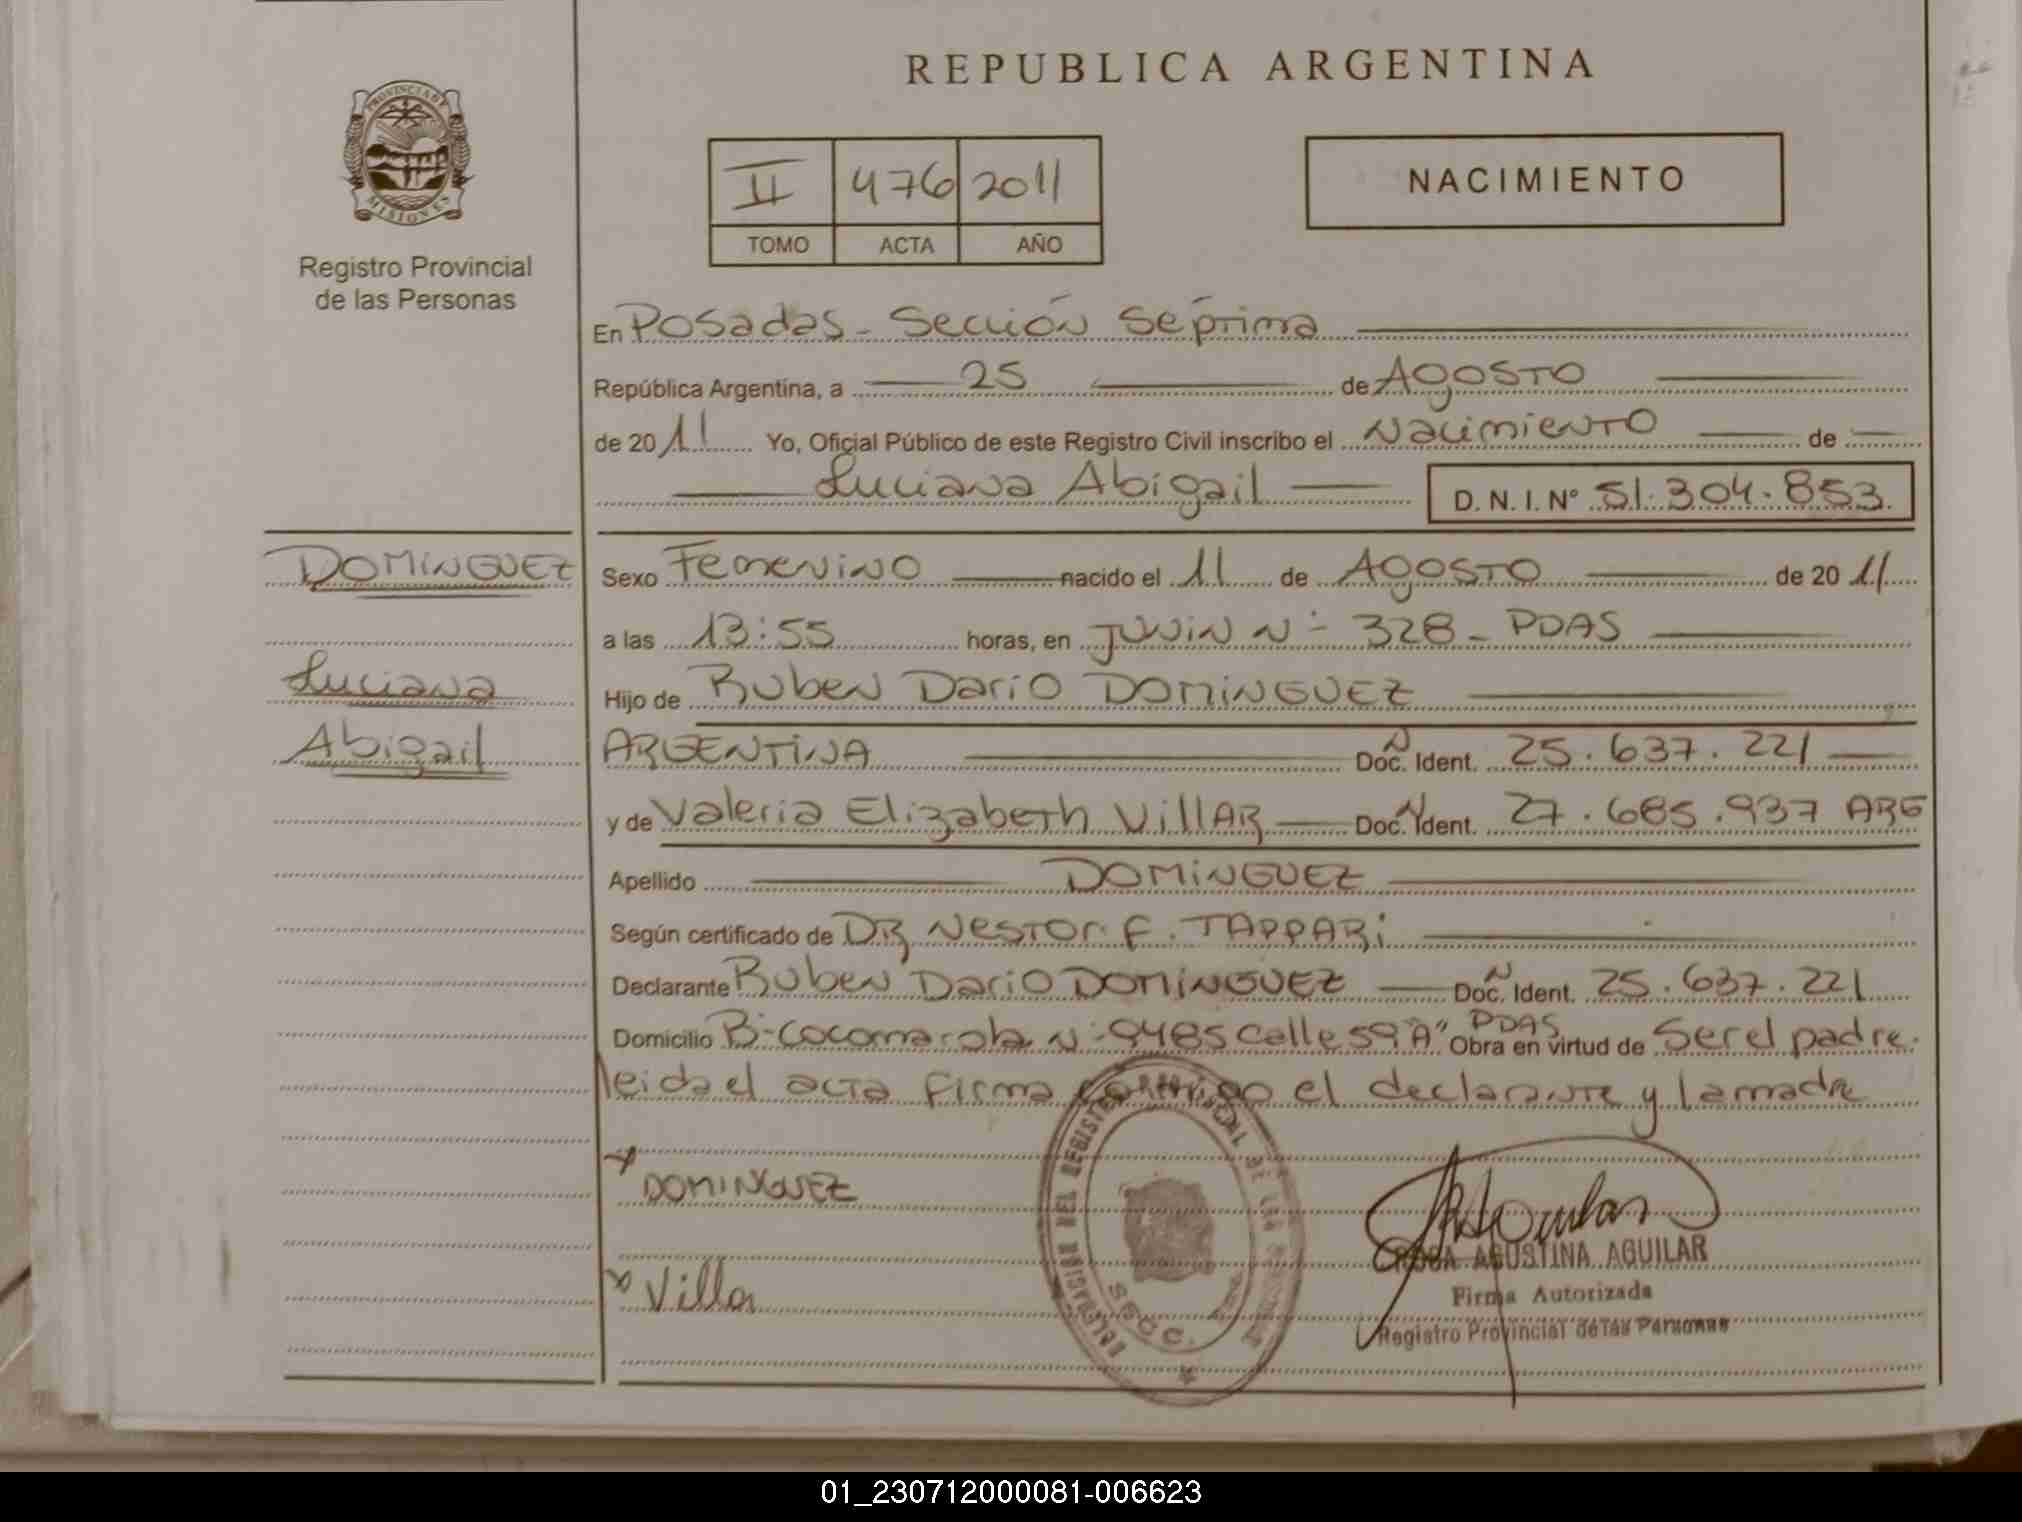 REPUBLICA ARGENTINA
PROVINCIA DE
MISIONES
Registro Provincial
de las Personas
II 476 2011
TOMO ACTA AÑO
NACIMIENTO
En Posadas - Sección Séptima
República Argentina, a 25 de Agosto
de 2011 Yo, Oficial Público de este Registro Civil inscribo el Nacimiento de
Luciana Abigail D. N. I. N° 51.304.853
DOMINGUEZ
Luciana
Abigail
Sexo Femenino nacido el 11 de Agosto de 2011
a las 13:55 horas, en Junin N- 328 - PDAS
Hijo de Ruben Dario DOMINGUEZ
ARGENTINA Doc. Ident. 25.637.221
y de Valeria Elizabeth VillAR Doc. Ident. 27.685.937 ARG
Apellido DOMINGUEZ
Según certificado de DR Nestor F. TAPPARi
Declarante Ruben Dario DOMINGUEZ Doc. Ident. 25.637.221
Domicilio B- Cocomarola N- 9485 calle 59 "A" PDAS Obra en virtud de Ser el padre.
leida el acta firma conmigo el declarante y la madre
DOMINGUEZ
Villar
ROSA AGUSTINA AGUILAR
Firma Autorizada
Registro Provincial de las Personas
01_230712000081-006623